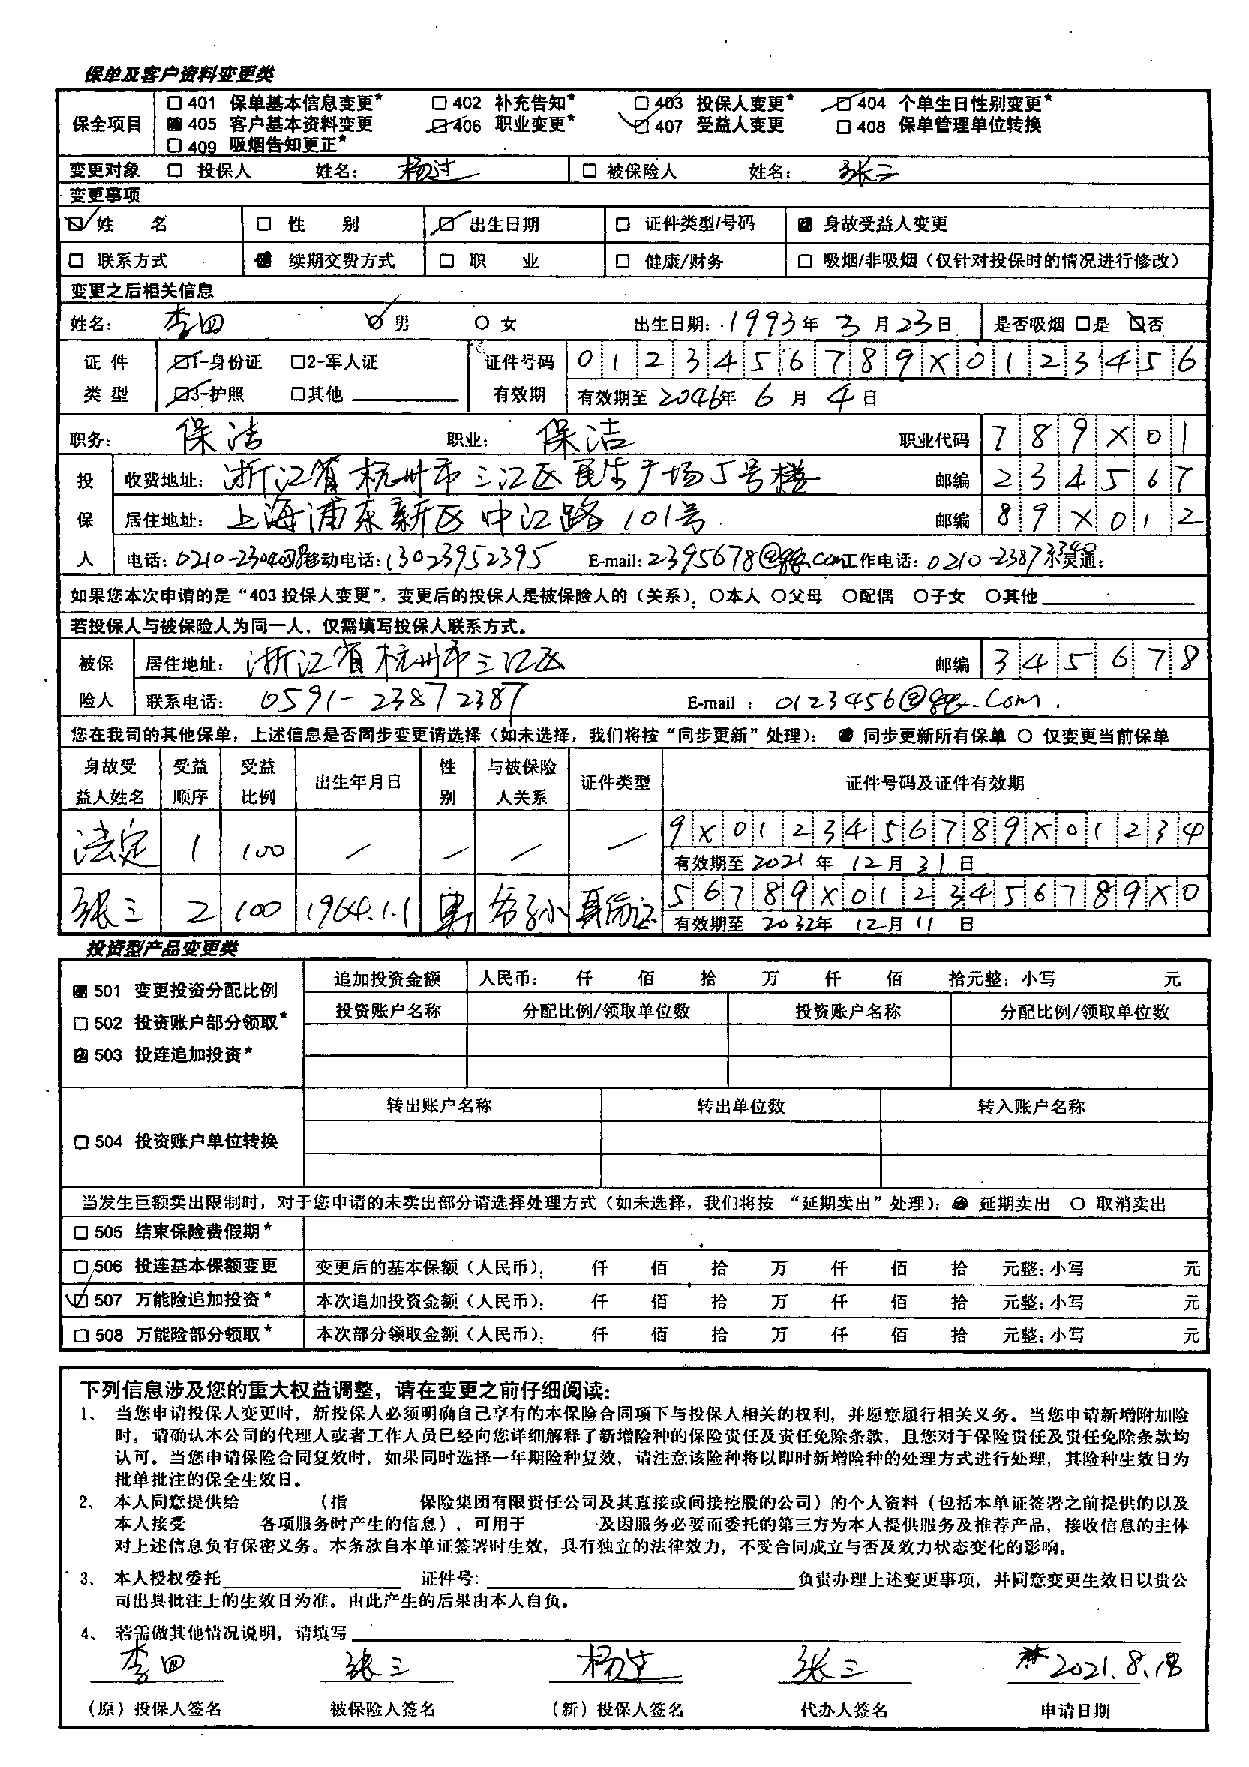 保单及客户资料变更类
保全项目 □ 401 保单基本信息变更* □ 402 补充告知* ☑ 403 投保人变更* ☑ 404 个单生日性别变更*
■ 405 客户基本资料变更 ☑ 406 职业变更* ☑ 407 受益人变更 □ 408 保单管理单位转换
□ 409 吸烟告知更正*
变更对象 □ 投保人 姓名: 杨过 □ 被保险人 姓名: 张三
变更事项
☑ 姓 名 □ 性 别 ☑ 出生日期 □ 证件类型/号码 ■ 身故受益人变更
□ 联系方式 ■ 续期交费方式 □ 职 业 □ 健康/财务 □ 吸烟/非吸烟(仅针对投保时的情况进行修改)
变更之后相关信息
姓名: 李四 ☑ 男 ○ 女 出生日期: 1993年 3 月 23日 是否吸烟 □是 ☑否
证 件 类 型 ☑1-身份证 □2-军人证 证件号码 0123456789X0123456
☑3-护照 □其他 有效期 有效期至 2046年 6 月 4 日
职务: 保洁 职业: 保洁 职业代码 789X01
投保人 收费地址: 浙江省杭州市三江区民生广场5号楼 邮编 234567
居住地址: 上海浦东新区中江路101号. 邮编 89X012
电话: 0210- 移动电话: 13023952395 E-mail: 2395678@qq.com 工作电话: 0210-2387 小灵通:
如果您本次申请的是“403 投保人变更”, 变更后的投保人是被保险人的(关系): ○本人 ○父母 ○配偶 ○子女 ○其他
若投保人与被保险人为同一人, 仅需填写投保人联系方式。
被保险人 居住地址: 浙江省杭州市三江区 邮编 345678
联系电话: 0591-23872387 E-mail : 0123456@qq.com.
您在我司的其他保单, 上述信息是否同步变更请选择(如未选择, 我们将按“同步更新”处理): ● 同步更新所有保单 ○ 仅变更当前保单
身故受益人姓名 受益顺序 受益比例 出生年月日 性别 与被保险人关系 证件类型 证件号码及证件有效期
法定 1 100 / / / / 9X0123456789X01234
有效期至 2021 年 12 月 31 日
张三 2 100 1964.1.1 男 56789X0123456789X0
有效期至 2032年 12月 11 日
投资型产品变更类
■ 501 变更投资分配比例 追加投资金额 人民币: 仟 佰 拾 万 仟 佰 拾元整: 小写 元
□ 502 投资账户部分领取* 投资账户名称 分配比例/领取单位数 投资账户名称 分配比例/领取单位数
☑ 503 投连追加投资*
□ 504 投资账户单位转换 转出账户名称 转出单位数 转入账户名称
当发生巨额卖出限制时, 对于您申请的未卖出部分请选择处理方式(如未选择, 我们将按 “延期卖出”处理): ● 延期卖出 ○ 取消卖出
□ 505 结束保险费假期*
□ 506 投连基本保额变更 变更后的基本保额(人民币): 仟 佰 拾 万 仟 佰 拾 元整: 小写 元
☑ 507 万能险追加投资* 本次追加投资金额(人民币): 仟 佰 拾 万 仟 佰 拾 元整: 小写 元
□ 508 万能险部分领取* 本次部分领取金额(人民币): 仟 佰 拾 万 仟 佰 拾 元整: 小写 元
下列信息涉及您的重大权益调整, 请在变更之前仔细阅读:
1、 当您申请投保人变更时, 新投保人必须明确自己享有的本保险合同项下与投保人相关的权利, 并愿意履行相关义务。当您申请新增附加险
时, 请确认本公司的代理人或者工作人员已经向您详细解释了新增险种的保险责任及责任免除条款, 且您对于保险责任及责任免除条款均
认可。当您申请保险合同复效时, 如果同时选择一年期险种复效, 请注意该险种将以即时新增险种的处理方式进行处理, 其险种生效日为
批单批注的保全生效日。
2、 本人同意提供给 (指 保险集团有限责任公司及其直接或间接控股的公司)的个人资料(包括本单证签署之前提供的以及
本人接受 各项服务时产生的信息), 可用于 及因服务必要而委托的第三方为本人提供服务及推荐产品, 接收信息的主体
对上述信息负有保密义务。本条款自本单证签署时生效, 具有独立的法律效力, 不受合同成立与否及效力状态变化的影响。
3、 本人授权委托 证件号: 负责办理上述变更事项, 并同意变更生效日以贵公
司出具批注上的生效日为准。由此产生的后果由本人自负。
4、 若需做其他情况说明, 请填写
李四 张三 杨过 张三 2021.8.18
(原)投保人签名 被保险人签名 (新)投保人签名 代办人签名 申请日期